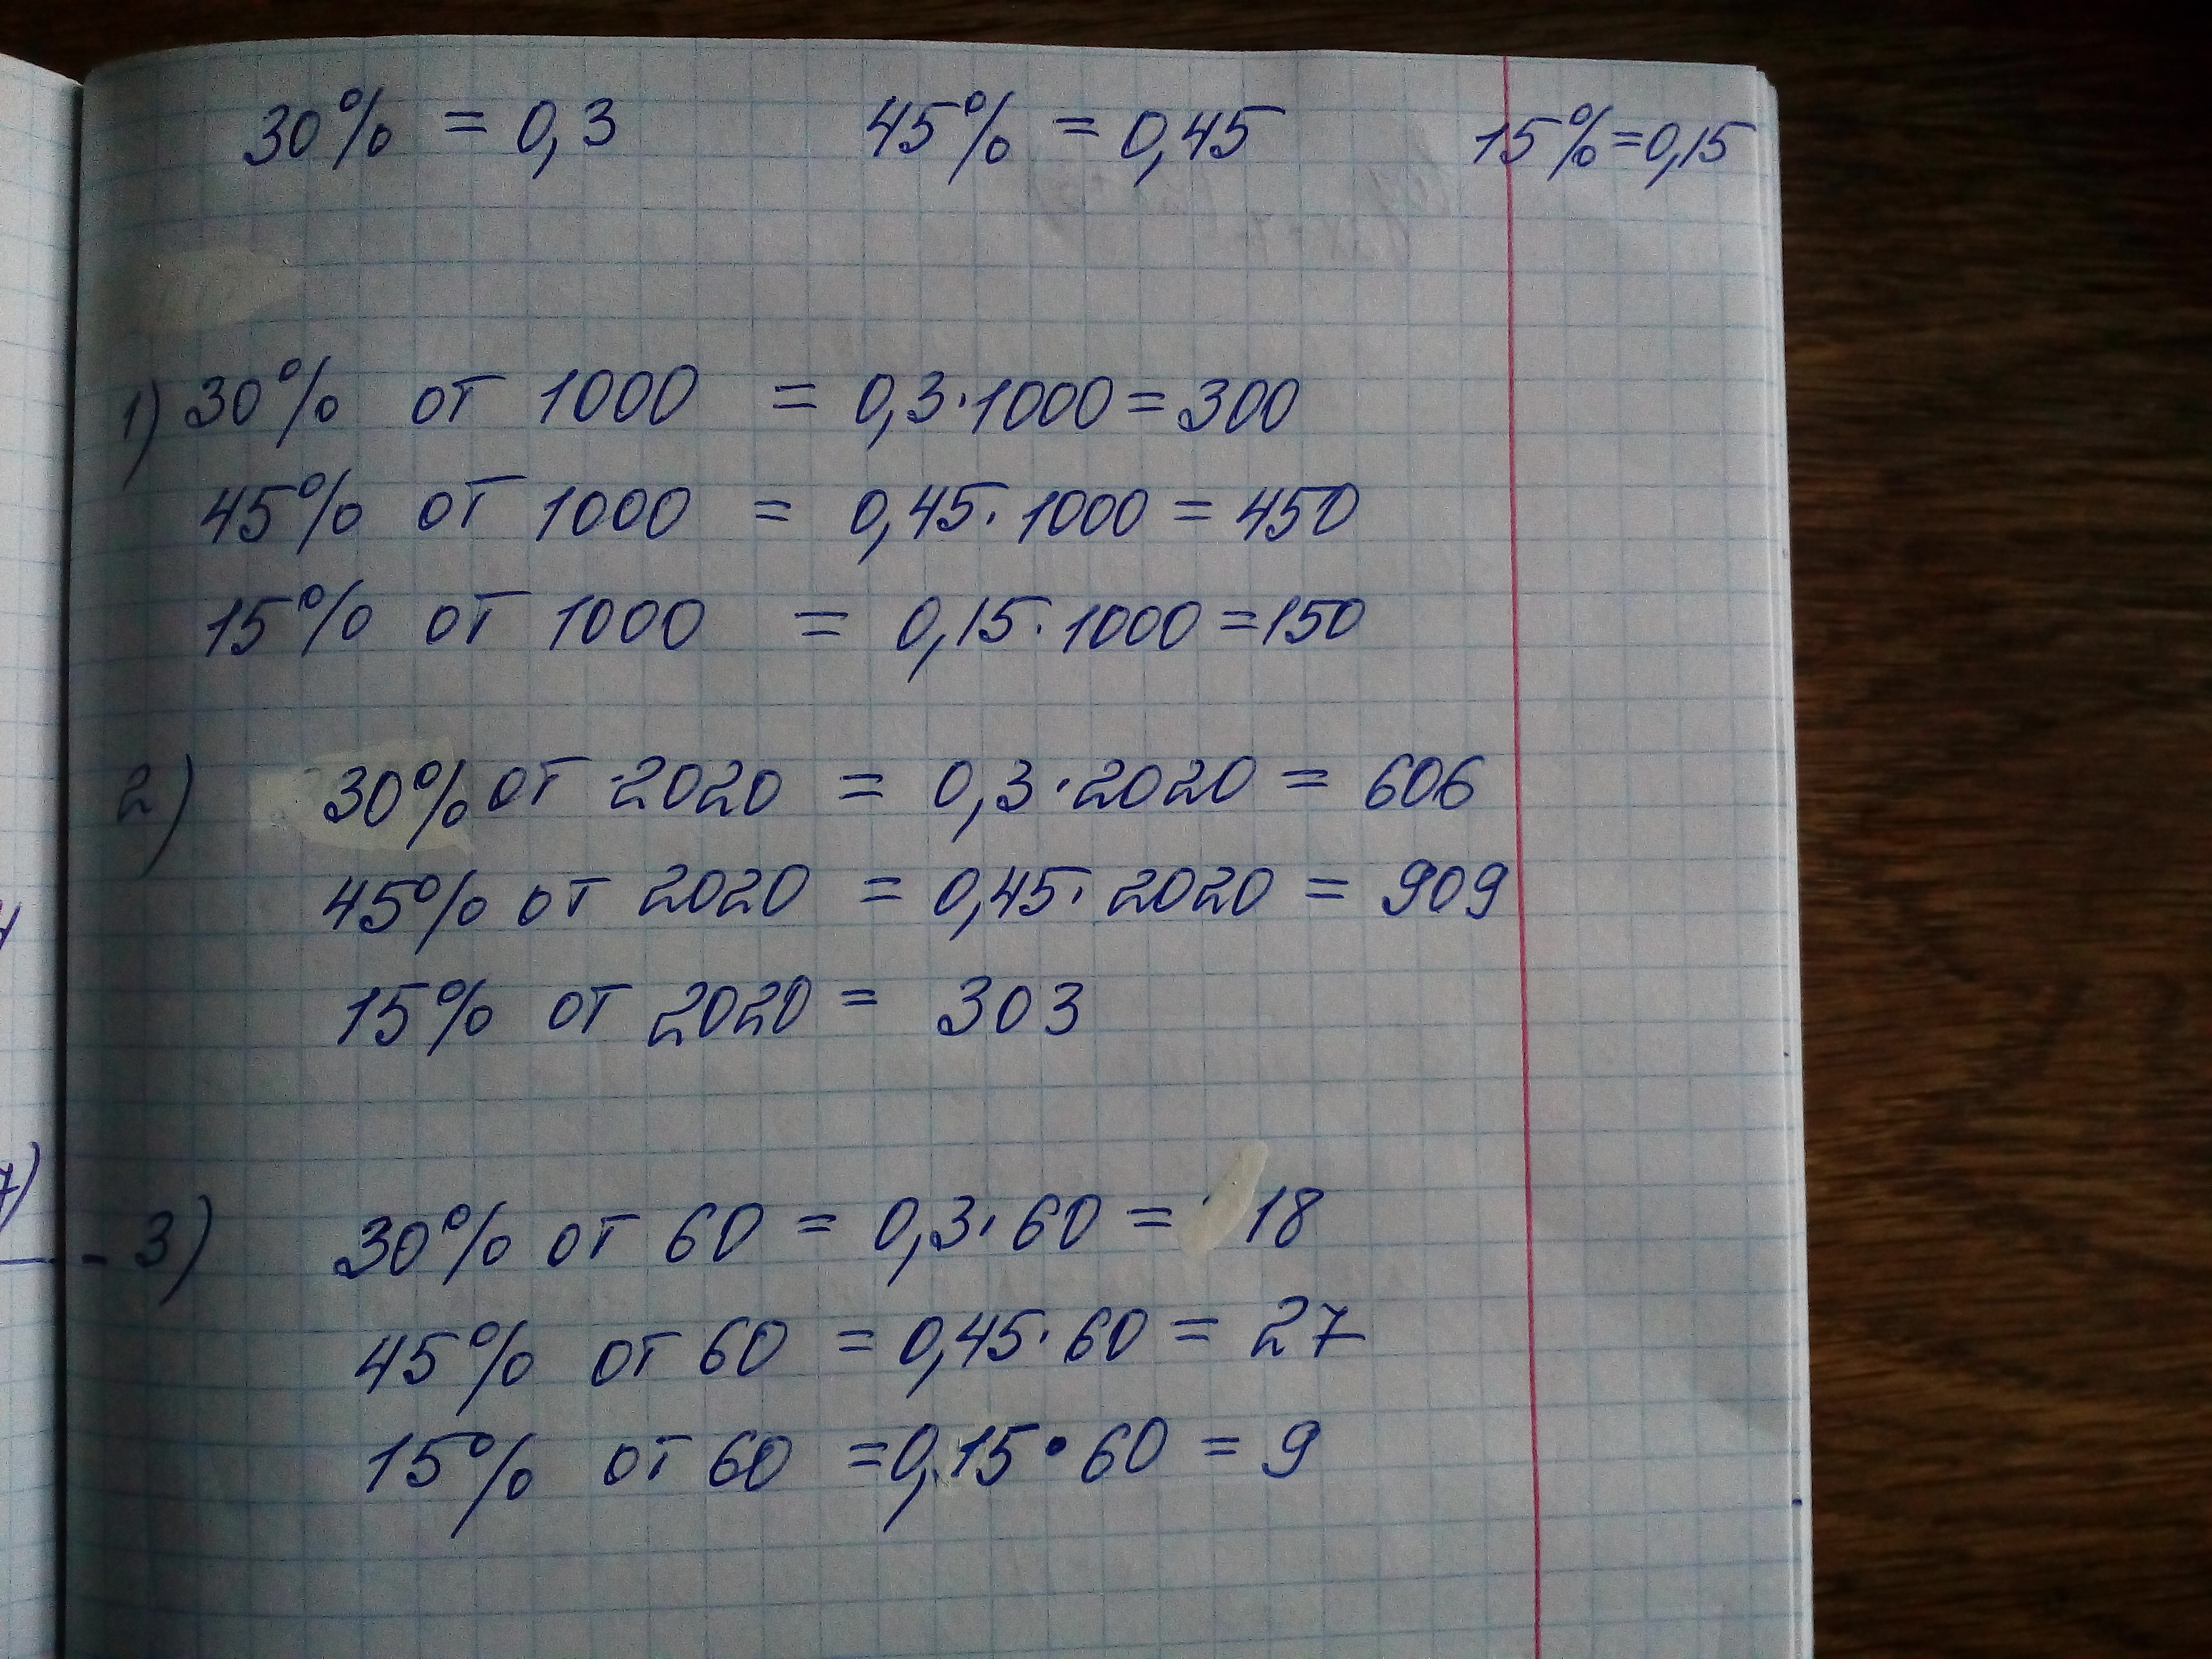 30% = 0,3 45% = 0,45 15% = 0,15
1) 30% от 1000 = 0,3·1000 = 300
45% от 1000 = 0,45·1000 = 450
15% от 1000 = 0,15·1000 = 150
2) 30% от 2020 = 0,3·2020 = 606
45% от 2020 = 0,45·2020 = 909
15% от 2020 = 303
3) 30% от 60 = 0,3·60 = 18
45% от 60 = 0,45·60 = 27
15% от 60 = 0,15·60 = 9
7)